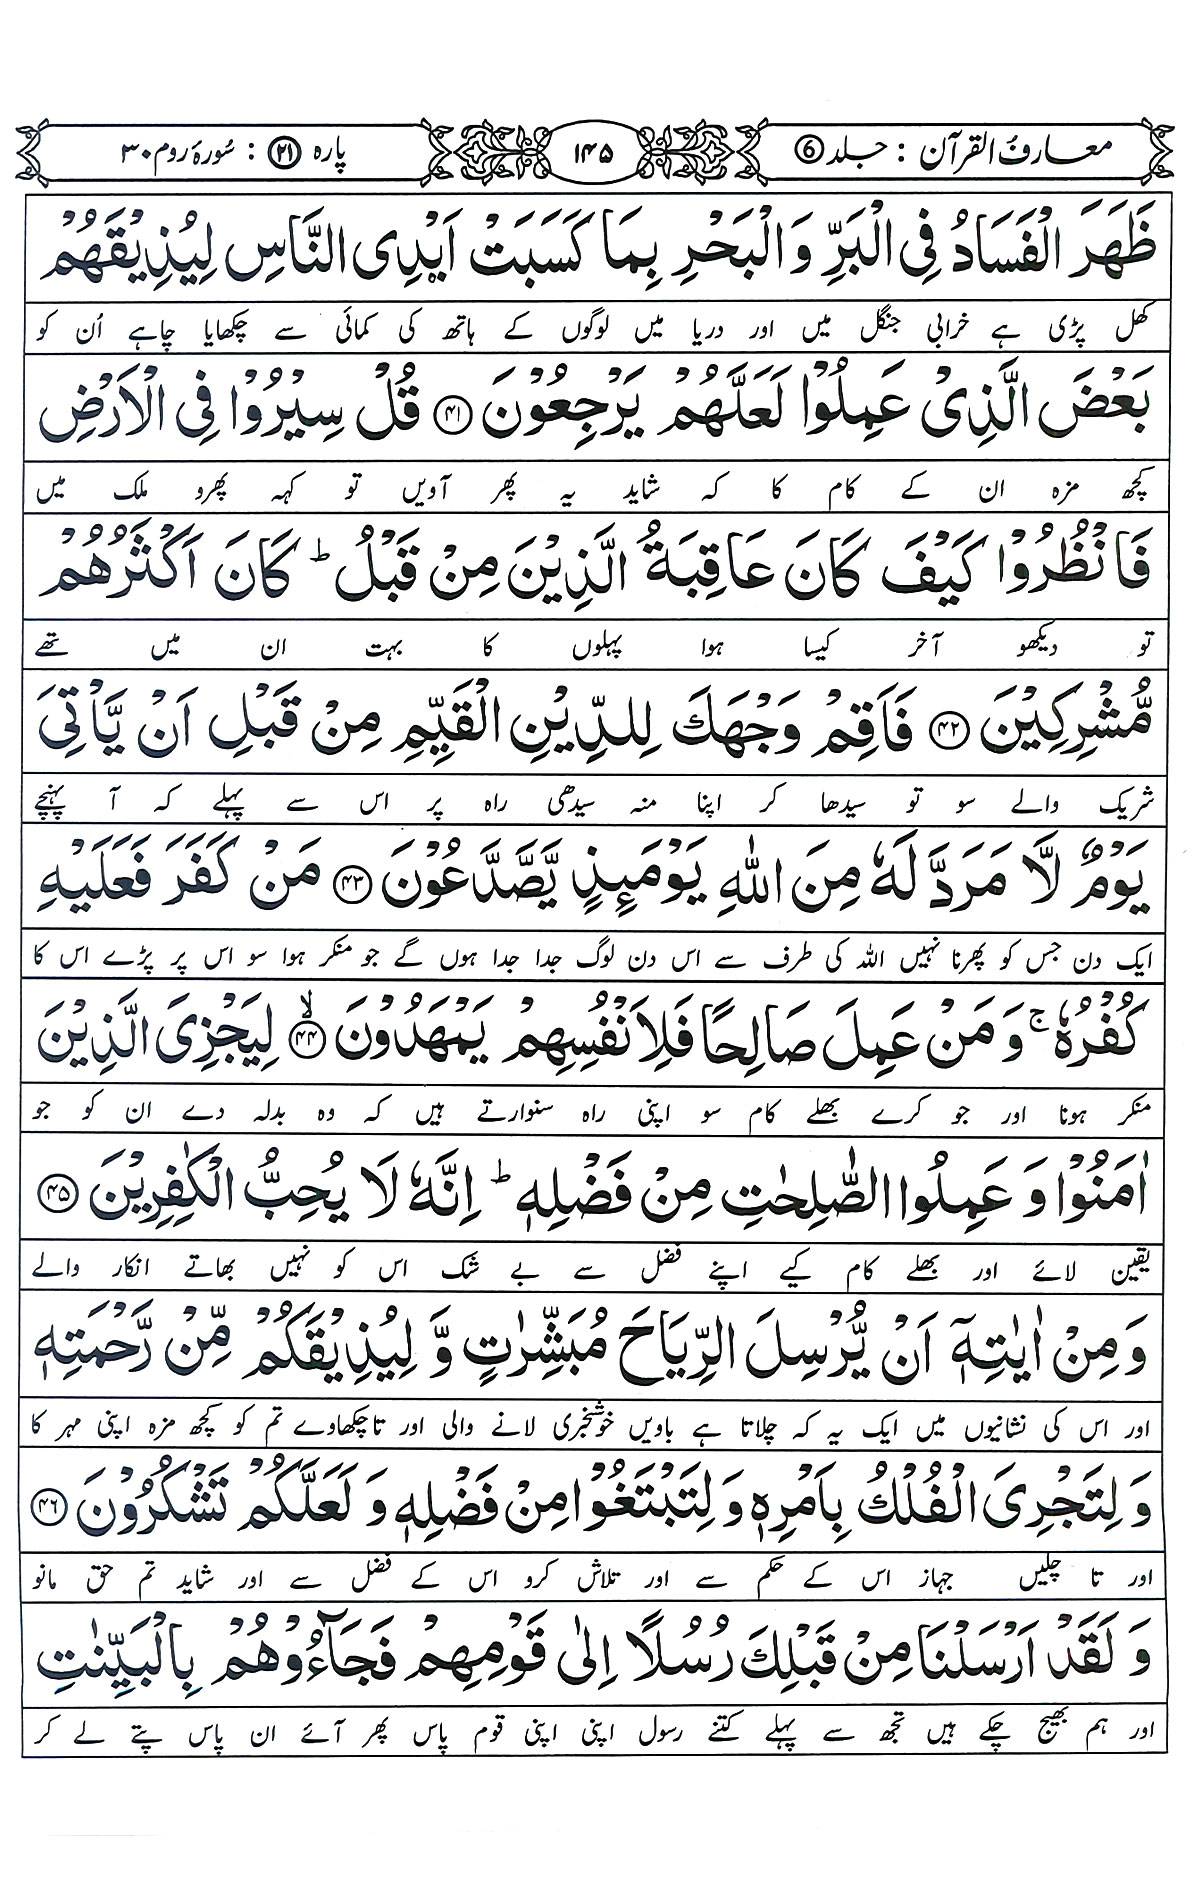 معارف القرآن : جلد ⑥
۱۴۵
پارہ ㉑ : سُورۂ روم ۳۰
ظَهَرَ الْفَسَادُ فِی الْبَرِّ وَ الْبَحْرِ بِمَا كَسَبَتْ اَیْدِی النَّاسِ لِیُذِیْقَهُمْ
کھل پڑی ہے خرابی جنگل میں اور دریا میں لوگوں کے ہاتھ کی کمائی سے چکھایا چاہے اُن کو
بَعْضَ الَّذِیْ عَمِلُوْا لَعَلَّهُمْ یَرْجِعُوْنَ ﴿۴۱﴾ قُلْ سِیْرُوْا فِی الْاَرْضِ
کچھ مزہ ان کے کام کا کہ شاید یہ پھر آویں تو کہہ پھرو ملک میں
فَانْظُرُوْا كَیْفَ كَانَ عَاقِبَةُ الَّذِیْنَ مِنْ قَبْلُ ؕ كَانَ اَكْثَرُهُمْ
تو دیکھو آخر کیسا ہوا پہلوں کا بہت ان میں تھے
مُّشْرِكِیْنَ ﴿۴۲﴾ فَاَقِمْ وَجْهَكَ لِلدِّیْنِ الْقَیِّمِ مِنْ قَبْلِ اَنْ یَّاْتِیَ
شریک والے سو تو سیدھا کر اپنا منہ سیدھی راہ پر اس سے پہلے کہ آ پہنچے
یَوْمٌ لَّا مَرَدَّ لَهٗ مِنَ اللّٰهِ یَوْمَىِٕذٍ یَّصَّدَّعُوْنَ ﴿۴۳﴾ مَنْ كَفَرَ فَعَلَیْهِ
ایک دن جس کو پھرنا نہیں اللہ کی طرف سے اس دن لوگ جدا جدا ہوں گے جو منکر ہوا سو اس پر پڑے اس کا
كُفْرُهٗ ۚ وَ مَنْ عَمِلَ صَالِحًا فَلِاَنْفُسِهِمْ یَمْهَدُوْنَ ﴿۴۴﴾ۙ لِیَجْزِیَ الَّذِیْنَ
منکر ہونا اور جو کرے بھلے کام سو اپنی راہ سنوارتے ہیں کہ وہ بدلہ دے ان کو جو
اٰمَنُوْا وَ عَمِلُوا الصّٰلِحٰتِ مِنْ فَضْلِهٖ ؕ اِنَّهٗ لَا یُحِبُّ الْكٰفِرِیْنَ ﴿۴۵﴾
یقین لائے اور بھلے کام کیے اپنے فضل سے بے شک اس کو نہیں بھاتے انکار والے
وَ مِنْ اٰیٰتِهٖۤ اَنْ یُّرْسِلَ الرِّیَاحَ مُبَشِّرٰتٍ وَّ لِیُذِیْقَكُمْ مِّنْ رَّحْمَتِهٖ
اور اس کی نشانیوں میں ایک یہ کہ چلاتا ہے باویں خوشخبری لانے والی اور تاچکھاوے تم کو کچھ مزہ اپنی مہر کا
وَ لِتَجْرِیَ الْفُلْكُ بِاَمْرِهٖ وَ لِتَبْتَغُوْا مِنْ فَضْلِهٖ وَ لَعَلَّكُمْ تَشْكُرُوْنَ ﴿۴۶﴾
اور تا چلیں جہاز اس کے حکم سے اور تلاش کرو اس کے فضل سے اور شاید تم حق مانو
وَ لَقَدْ اَرْسَلْنَا مِنْ قَبْلِكَ رُسُلًا اِلٰى قَوْمِهِمْ فَجَآءُوْهُمْ بِالْبَیِّنٰتِ
اور ہم بھیج چکے ہیں تجھ سے پہلے کتنے رسول اپنی اپنی قوم پاس پھر آئے ان پاس پتے لے کر